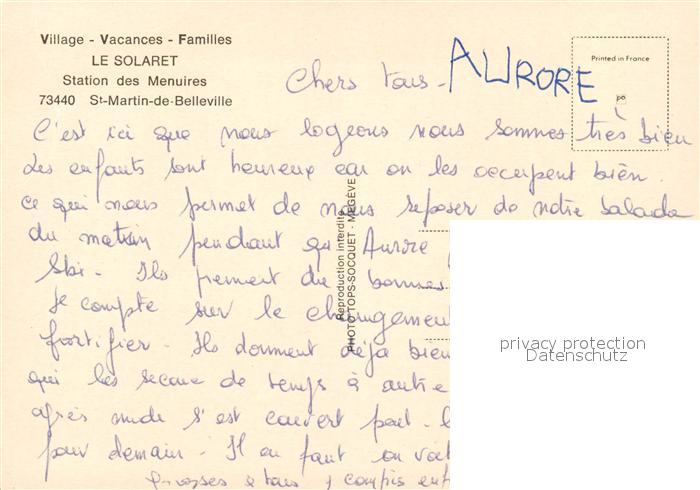 Village - Vacances - Familles
LE SOLARET
Station des Menuires
73440 St-Martin-de-Belleville
Printed in France
Chers tous - AURORE
C'est ici que nous logeons nous sommes très bien
Les enfants sont heureux car on les occupent bien.
ce qui nous permet de nous reposer de notre balade
du matin pendant que Aurore
Ski - Ils prennent du bonnes
Je compte sur le changement
fortifier - Ils dorment déjà bien
qui les secoue de temps à autre
après s'est couvert peut-
pour demain - Il en faut on
Grosses à tous y compris
Reproduction interdite
PHOTO TOPS-SOCQUET - MEGÈVE
privacy protection
Datenschutz